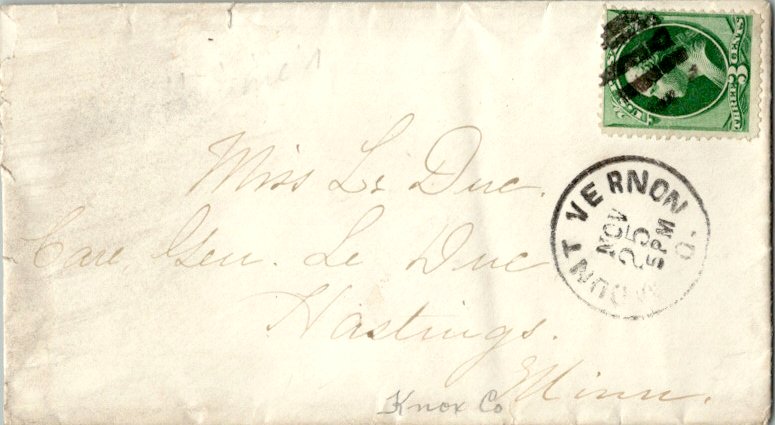 THREE CENTS
MOUNT VERNON O.
NOV
25
5 PM
Miss Le Duc.
Care Gen. Le Duc
Hastings.
Minn.
Knox Co